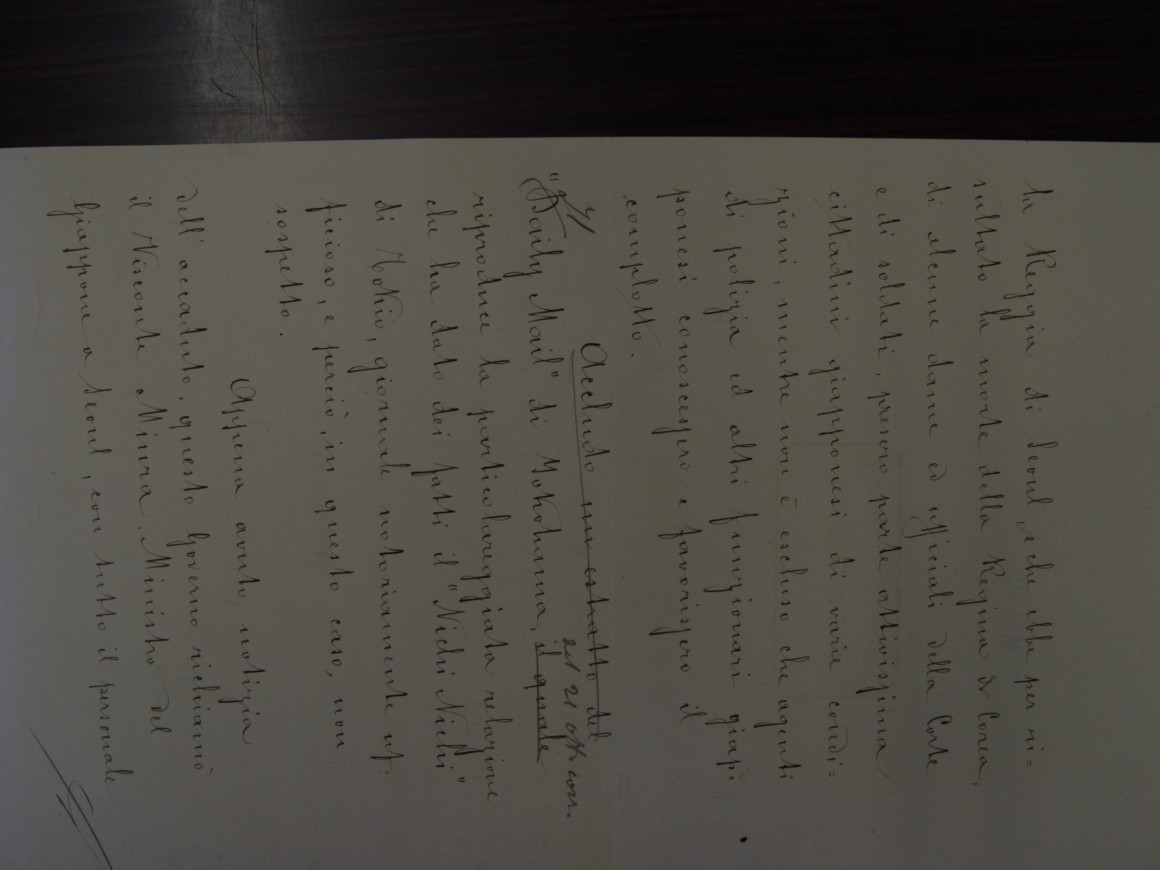 la Reggia di Seoul, e che ebbe per ri=
sultato la morte della Regina di Corea,
di alcune dame ed ufficiali della Corte
e di soldati, presero parte attivissima
cittadini giapponesi di varie condi=
zioni, mentre non è escluso che agenti
di polizia ed altri funzionari giap=
ponesi conoscessero e favorissero il
complotto.
Accludo un estratto del
"Daily Mail" di Yokohama, il quale
del 21 ott. corr.
riproduce la particolareggiata relazione
che ha dato dei fatti il "Nichi Nichi"
di Tokio, giornale notoriamente uf=
ficioso, e perciò, in questo caso, non
sospetto.
Appena avuto notizia
dell'accaduto, questo Governo richiamò
il Visconte Miura, Ministro del
Giappone a Seoul, con tutto il personale